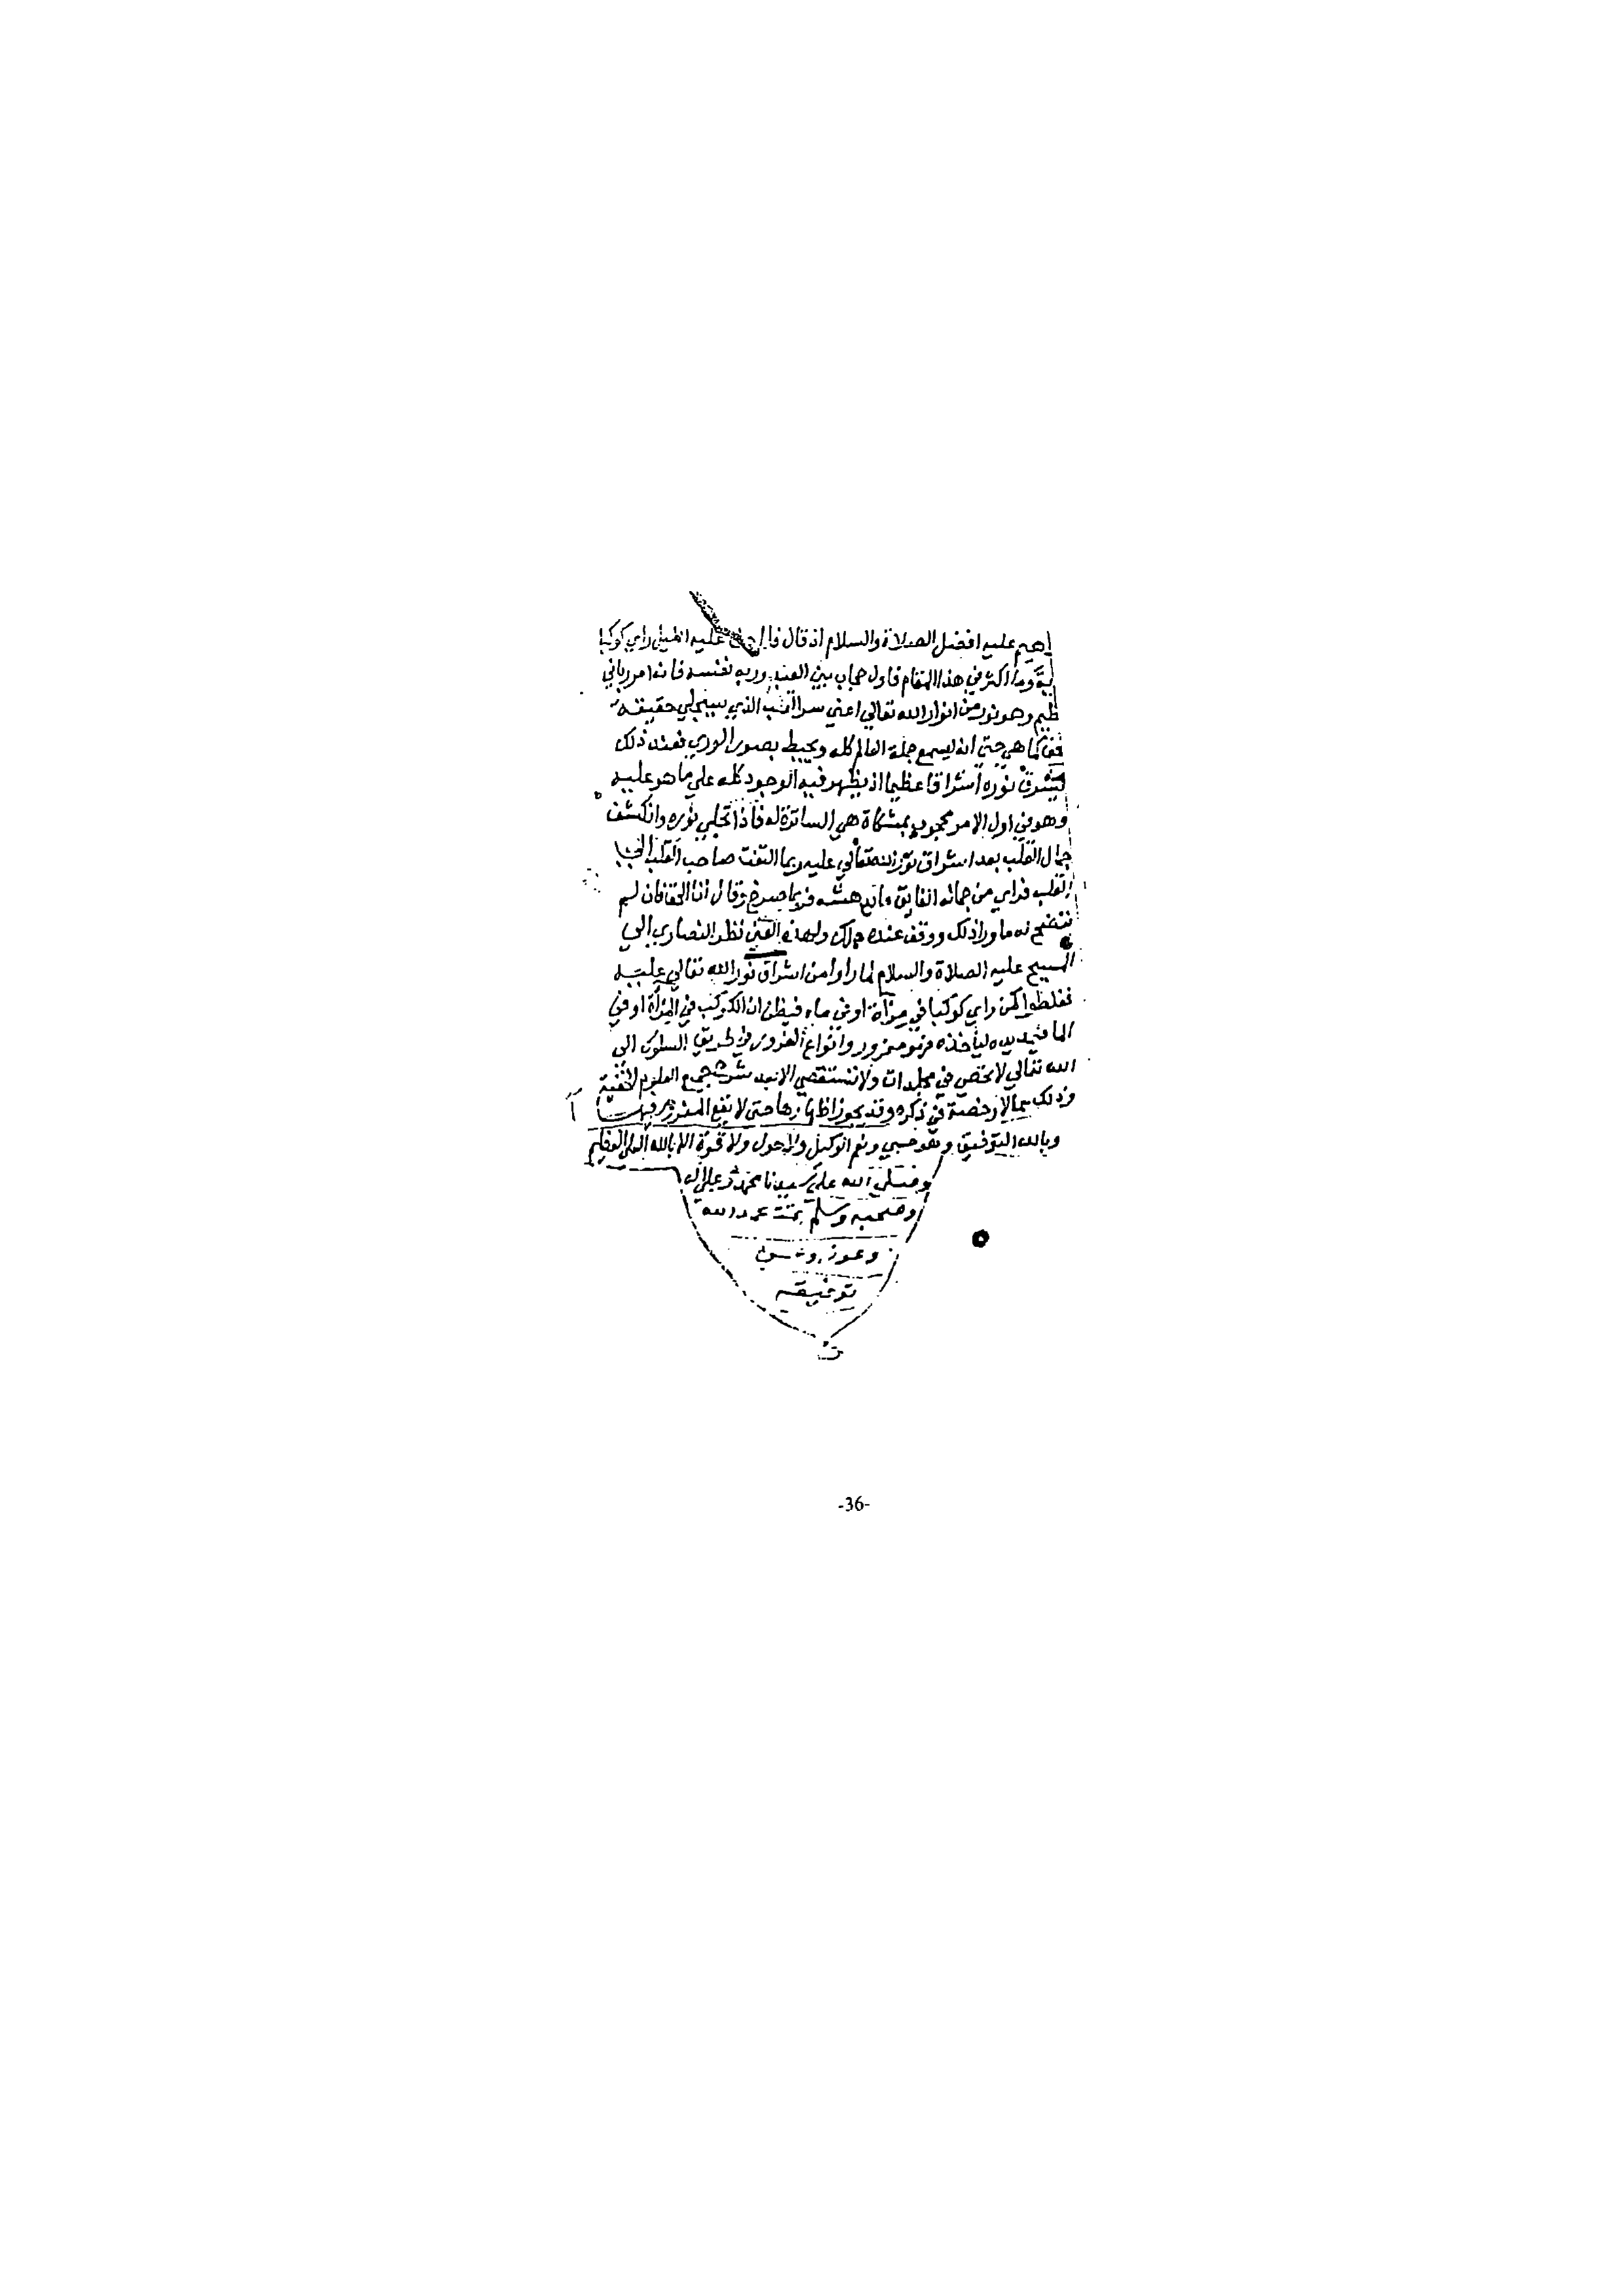 اهيم عليه افضل الصلاة والسلام اذ قال فلما جن عليه الليل راي كوكبا
ية وما اكثر في هذا المقام فاول حجاب بين العبد وربه نفسه فانه امر رباني
ظيم وهو نور من انوار الله تعالى اعني سر القلب الذي سيتجلى حقيقة
كما هي حتى انه ليسع جملة العالم كله ويحيط بصور الوري فعند ذلك
يشرق نوره اشراقا عظيما اذ يظهر فيه الوجود كله على ما هو عليه
وهو في اول الامر محجوب بمشكاة هي الساترة له فاذا تجلي نوره وانكشف
جمال القلب بعد اشراق نور الله تعالى عليه ربما التفت صاحب القلب الى
القلب فراي من جماله الفايق ما يدهشه فربما صرخ وقال انا الحق فان لم
يتضح له ما وراذلك ووقف عنده هلك ولهذه العين نظر النصاري الي
المسيح عليه الصلاة والسلام لما راوا من اشراق نور الله تعالى عليه
فغلطوا كمن راي كوكبا في مرآة او في ماء فيظن ان الكوكب في المرآة او في
الما فيمد يده لياخذه فهو مغرور وانواع الغرور في طريق السلوك الى
الله تعالى لا تحصى في مجلدات ولا تستقصي الا بعد شرح جميع العلوم الخفية
وذلك مما لا رخصة في ذكره وقد يجوز اظهارها حتى لا يقع المغرور فيها
وبالله التوفيق وهو حسبي ونعم الوكيل ولا حول ولا قوة الا بالله العلي العظيم
وصلى الله على سيدنا محمد وعلى اله
وصحبه وسلم تمت بحمد الله
وعونه وحسن
توفيقه
ت
-36-